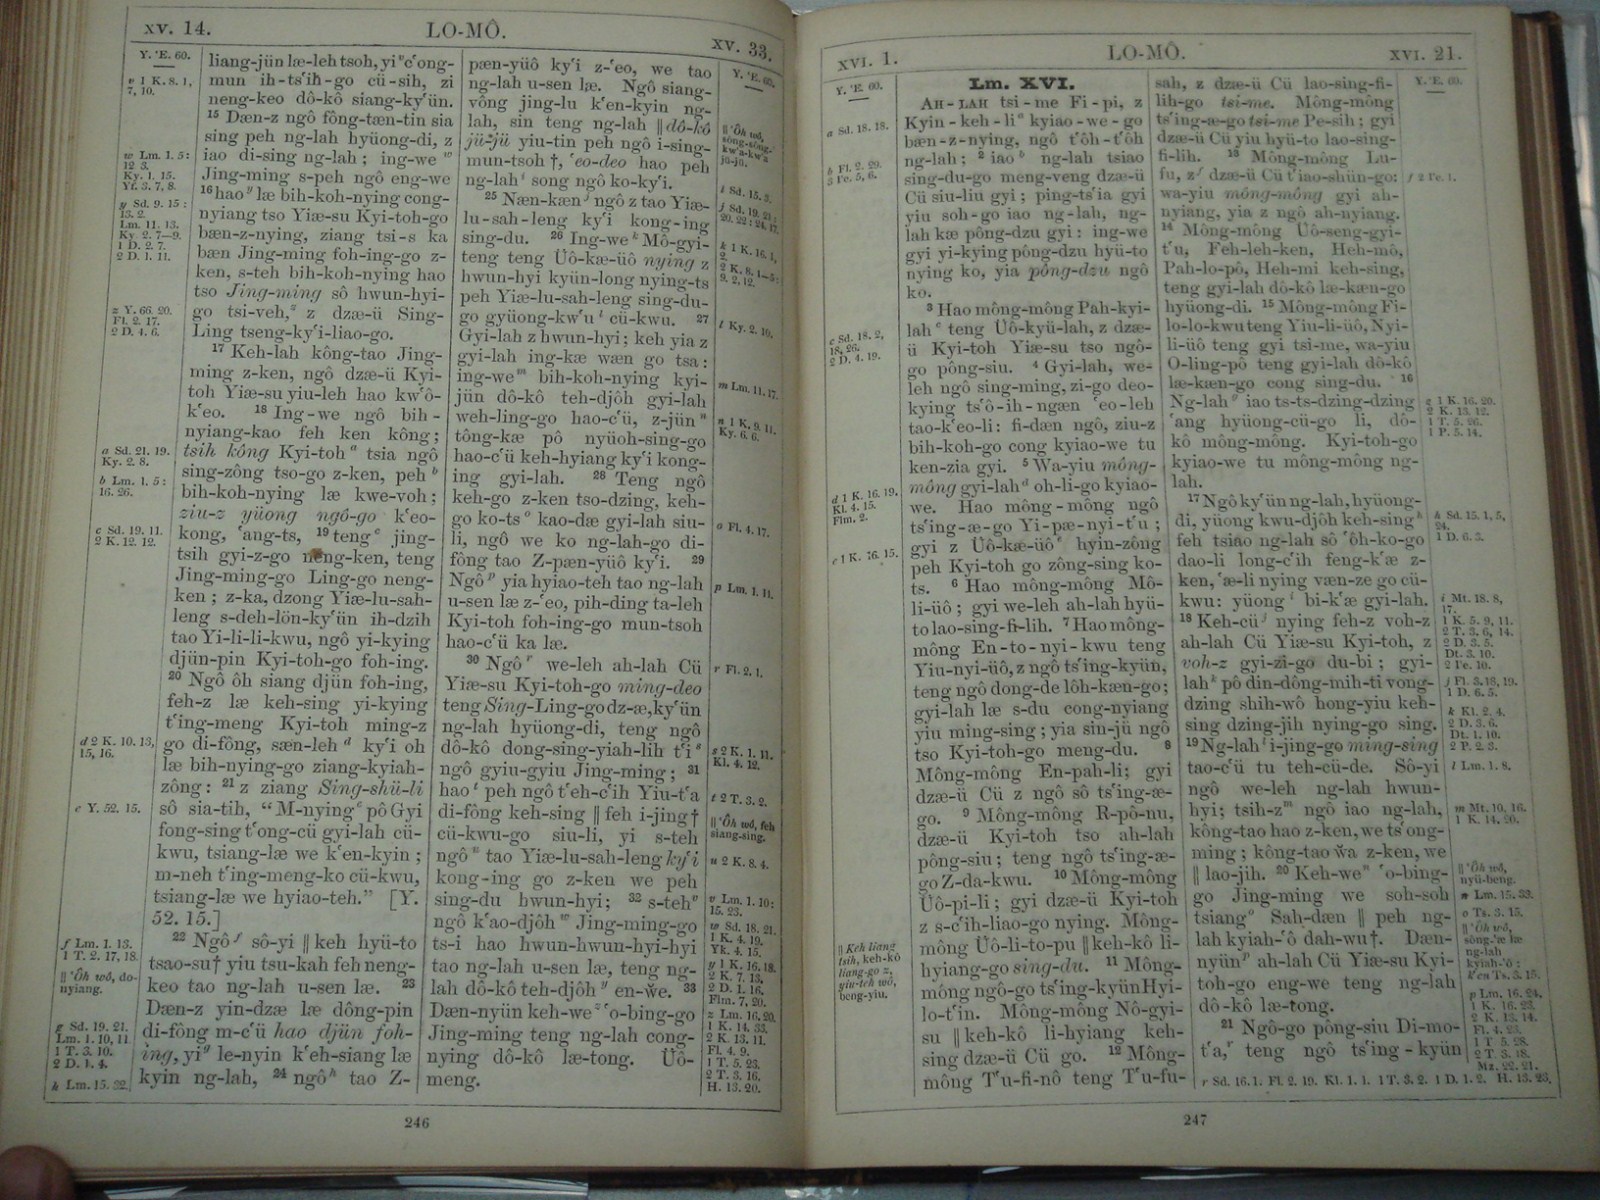 XV. 14.
LO-MÔ.
XV. 33.
Y. 'E. 60.
v 1 K. 8. 1,
7, 10.
w Lm. 1. 5:
12. 3.
Ky. 1. 15.
Yt. 3. 7, 8.
y Sd. 9. 15:
13. 2.
Lm. 11. 13.
Ky. 2. 7—9.
1 D. 2. 7.
2 D. 1. 11.
z Y. 66. 20.
Fl. 2. 17.
2 D. 4. 6.
a Sd. 21. 19.
Ky. 2. 8.
b Lm. 1. 5:
16. 26.
c Sd. 19. 11.
2 K. 12. 12.
d 2 K. 10. 13,
15, 16.
e Y. 52. 15.
f Lm. 1. 13.
1 T. 2. 17, 18.
‖ 'Ôh wô, do-
nyiang.
g Sd. 19. 21.
Lm. 1. 10, 11.
1 T. 3. 10.
2 D. 1. 4.
h Lm. 15. 32.
liang-jün læ-leh tsoh, yi ʷc'ong-
mun ih-ts'ih-go cü-sih, zi
neng-keo dô-kô siang-ky'ün.
15 Dæn-z ngô fông-tæn-tin sia
sing peh ng-lah hyüong-di, z
iao di-sing ng-lah; ing-we ʷ
Jing-ming s-peh ngô eng-we
16 hao ʸ læ bih-koh-nying cong-
nyiang tso Yiæ-su Kyi-toh-go
bæn-z-nying, ziang tsi-s ka
bæn Jing-ming foh-ing-go z-
ken, s-teh bih-koh-nying hao
tso Jing-ming sô hwun-hyi-
go tsi-veh, ᶻ z dzæ-ü Sing-
Ling tseng-ky'i-liao-go.
17 Keh-lah kông-tao Jing-
ming z-ken, ngô dzæ-ü Kyi-
toh Yiæ-su yiu-leh hao kw'ô-
k'eo. 18 Ing-we ngô bih-
nyiang-kao feh ken kông;
tsih kông Kyi-toh ᵃ tsia ngô
sing-zông tso-go z-ken, peh ᵇ
bih-koh-nying læ kwe-voh;
ziu-z yüong ngô-go k'eo-
kong, 'ang-ts, 19 teng ᶜ jing-
tsih gyi-z-go neng-ken, teng
Jing-ming-go Ling-go neng-
ken; z-ka, dzong Yiæ-lu-sah-
leng s-deh-lön-ky'ün ih-dzih
tao Yi-li-li-kwu, ngô yi-kying
djün-pin Kyi-toh-go foh-ing.
20 Ngô ôh siang djün foh-ing,
feh-z læ keh-sing yi-kying
t'ing-meng Kyi-toh ming-z
go di-fông, sæn-leh ᵈ ky'i oh
læ bih-nying-go ziang-kyiah-
zông: 21 z ziang Sing-shü-li
sô sia-tih, “M-nying ᵉ pô Gyi
fong-sing t'ong-cü gyi-lah cü-
kwu, tsiang-læ we k'en-kyin;
m-neh t'ing-meng-ko cü-kwu,
tsiang-læ we hyiao-teh.” [Y.
52. 15.]
22 Ngô ᶠ sô-yi ‖ keh hyü-to
tsao-su† yiu tsu-kah feh neng-
keo tao ng-lah u-sen læ. 23
Dæn-z yin-dzæ læ dông-pin
di-fông m-c'ü hao djün foh-
ing, yi ᵍ le-nyin k'eh-siang læ
kyin ng-lah, 24 ngô ʰ tao Z-
pæn-yüô ky'i z-'eo, we tao
ng-lah u-sen læ. Ngô siang-
vông jing-lu k'en-kyin ng-
lah, sin teng ng-lah ‖ dô-kô
jü-jü yiu-tin peh ngô i-sing-
mun-tsoh †, 'eo-deo hao peh
ng-lah ⁱ song ngô ko-ky'i.
25 Næn-kæn ʲ ngô z tao Yiæ-
lu-sah-leng ky'i kong-ing
sing-du. 26 Ing-we ᵏ Mô-gyi-
teng teng Üô-kæ-üô nying z
hwun-hyi kyün-long nying-ts
peh Yiæ-lu-sah-leng sing-du-
go gyüong-kw'u ˡ cü-kwu. 27
Gyi-lah z hwun-hyi; keh yia z
gyi-lah ing-kæ wæn go tsa:
ing-we ᵐ bih-koh-nying kyi-
jün dô-kô teh-djôh gyi-lah
weh-ling-go hao-c'ü, z-jün ⁿ
tông-kæ pô nyüoh-sing-go
hao-c'ü keh-hyiang ky'i kong-
ing gyi-lah. 28 Teng ngô
keh-go z-ken tso-dzing, keh-
go ko-ts ᵒ kao-dæ gyi-lah siu-
li, ngô we ko ng-lah-go di-
fông tao Z-pæn-yüô ky'i. 29
Ngô ᵖ yia hyiao-teh tao ng-lah
u-sen læ z-'eo, pih-ding ta-leh
Kyi-toh foh-ing-go mun-tsoh
hao-c'ü ka læ.
30 Ngô ʳ we-leh ah-lah Cü
Yiæ-su Kyi-toh-go ming-deo
teng Sing-Ling-go dz-æ, ky'ün
ng-lah hyüong-di, teng ngô
dô-kô dong-sing-yiah-lih t'i ˢ
ngô gyiu-gyiu Jing-ming; 31
hao ᵗ peh ngô t'eh-c'ih Yiu-t'a
di-fông keh-sing ‖ feh i-jing†
cü-kwu-go siu-li, yi s-teh
ngô ᵘ tao Yiæ-lu-sah-leng ky'i
kong-ing go z-ken we peh
sing-du hwun-hyi; 32 s-teh ᵛ
ngô k'ao-djôh ʷ Jing-ming-go
ts-i hao hwun-hwun-hyi-hyi
tao ng-lah u-sen læ, teng ng-
lah dô-kô teh-djôh ʸ en-we. 33
Dæn-nyün keh-we ᶻ 'o-bing-go
Jing-ming teng ng-lah cong-
nying dô-kô læ-tong. Üô-
meng.
Y. 'E. 60.
‖ 'Ôh wô,
sông-sông-
kw'a-kw'a
jü-jü.
i Sd. 15. 3.
j Sd. 19. 21:
20. 22: 24. 17.
k 1 K. 16. 1,
2.
2 K. 8. 1—5:
9. 2, 12.
l Ky. 2. 10.
m Lm. 11. 17.
n 1 K. 9. 11.
Ky. 6. 6.
o Fl. 4. 17.
p Lm. 1. 11.
r Fl. 2. 1.
s 2 K. 1. 11.
Kl. 4. 12.
t 2 T. 3. 2.
‖ 'Ôh wô, feh
siang-sing.
u 2 K. 8. 4.
v Lm. 1. 10:
15. 23.
w Sd. 18. 21.
1 K. 4. 19.
Yk. 4. 15.
y 1 K. 16. 18.
2 K. 7. 13.
2 D. 1. 16.
Flm. 7, 20.
z Lm. 16. 20.
1 K. 14. 33.
2 K. 13. 11.
Fl. 4. 9.
1 T. 5. 23.
2 T. 3. 16.
H. 13. 20.
246
XVI. 1.
LO-MÔ.
XVI. 21.
Y. 'E. 60.
a Sd. 18. 18.
b Fl. 2. 29.
3 Ie. 5, 6.
c Sd. 18. 2,
18, 26.
2 D. 4. 19.
d 1 K. 16. 19.
Kl. 4. 15.
Flm. 2.
e 1 K. 16. 15.
‖ Keh liang
tsih, keh-kô
liang-go z,
yiu-teh wô,
beng-yiu.
Lm. XVI.
AH-LAH tsi-me Fi-pi, z
Kyin-keh-li ᵃ kyiao-we-go
bæn-z-nying, ngô t'ôh-t'ôh
ng-lah; 2 iao ᵇ ng-lah tsiao
sing-du-go meng-veng dzæ-ü
Cü siu-liu gyi; ping-ts'ia gyi
yiu soh-go iao ng-lah, ng-
lah kæ pông-dzu gyi: ing-we
gyi yi-kying pông-dzu hyü-to
nying ko, yia pông-dzu ngô
ko.
3 Hao mông-mông Pah-kyi-
lah ᶜ teng Üô-kyü-lah, z dzæ-
ü Kyi-toh Yiæ-su tso ngô-
go pông-siu. 4 Gyi-lah, we-
leh ngô sing-ming, zi-go deo-
kying ts'ô-ih-ngæn 'eo-leh
tao-k'eo-li: fi-dæn ngô, ziu-z
bih-koh-go cong kyiao-we tu
ken-zia gyi. 5 Wa-yiu mông-
mông gyi-lah ᵈ oh-li-go kyiao-
we. Hao mông-mông ngô
ts'ing-æ-go Yi-pæ-nyi-t'u;
gyi z Üô-kæ-üô ᵉ hyin-zông
peh Kyi-toh go zông-sing ko-
ts. 6 Hao mông-mông Mô-
li-üô; gyi we-leh ah-lah hyü-
to lao-sing-fi-lih. 7 Hao mông-
mông En-to-nyi-kwu teng
Yiu-nyi-üô, z ngô ts'ing-kyün,
teng ngô dong-de lôh-kæn-go;
gyi-lah læ s-du cong-nyiang
yiu ming-sing; yia sin-jü ngô
tso Kyi-toh-go meng-du. 8
Mông-mông En-pah-li; gyi
dzæ-ü Cü z ngô sô ts'ing-æ-
go. 9 Mông-mông R-pô-nu,
dzæ-ü Kyi-toh tso ah-lah
pông-siu; teng ngô ts'ing-æ-
go Z-da-kwu. 10 Mông-mông
Üô-pi-li; gyi dzæ-ü Kyi-toh
z s-c'ih-liao-go nying. Mông-
mông Üô-li-to-pu ‖ keh-kô li-
hyiang-go sing-du. 11 Mông-
mông ngô-go ts'ing-kyün Hyi-
lo-t'in. Mông-mông Nô-gyi-
su ‖ keh-kô li-hyiang keh-
sing dzæ-ü Cü go. 12 Mông-
mông T'u-fi-nô teng T'u-fu-
sah, z dzæ-ü Cü lao-sing-fi-
lih-go tsi-me. Mông-mông
ts'ing-æ-go tsi-me Pe-sih; gyi
dzæ-ü Cü yiu hyü-to lao-sing-
fi-lih. 13 Mông-mông Lu-
fu, z ᶠ dzæ-ü Cü t'iao-shün-go:
wa-yiu mông-mông gyi ah-
nyiang, yia z ngô ah-nyiang.
14 Mông-mông Üô-seng-gyi-
t'u, Feh-leh-ken, Heh-mô,
Pah-lo-pô, Heh-mi keh-sing,
teng gyi-lah dô-kô læ-kæn-go
hyüong-di. 15 Mông-mông Fi-
lo-lo-kwu teng Yiu-li-üô, Nyi-
li-üô teng gyi tsi-me, wa-yiu
O-ling-pô teng gyi-lah dô-kô
læ-kæn-go cong sing-du. 16
Ng-lah ᵍ iao ts-ts-dzing-dzing
'ang hyüong-cü-go li, dô-
kô mông-mông. Kyi-toh-go
kyiao-we tu mông-mông ng-
lah.
17 Ngô ky'ün ng-lah, hyüong-
di, yüong kwu-djôh keh-sing ʰ
feh tsiao ng-lah sô 'ôh-ko-go
dao-li long-c'ih feng-k'æ z-
ken, 'æ-li nying væn-ze go cü-
kwu: yüong ⁱ bi-k'æ gyi-lah.
18 Keh-cü ʲ nying feh-z voh-z
ah-lah Cü Yiæ-su Kyi-toh, z
voh-z gyi-zi-go du-bi; gyi-
lah ᵏ pô din-dông-mih-ti vong-
dzing shih-wô hong-yiu keh-
sing dzing-jih nying-go sing.
19 Ng-lah ˡ i-jing-go ming-sing
tao-c'ü tu teh-cü-de. Sô-yi
ngô we-leh ng-lah hwun-
hyi; tsih-z ᵐ ngô iao ng-lah,
kông-tao hao z-ken, we ts'ong-
ming; kông-tao wa z-ken, we
‖ lao-jih. 20 Keh-we ⁿ 'o-bing-
go Jing-ming we soh-soh
tsiang ᵒ Sah-dæn ‖ peh ng-
lah kyiah-'ô dah-wu†. Dæn-
nyün ᵖ ah-lah Cü Yiæ-su Kyi-
toh-go eng-we teng ng-lah
dô-kô læ-tong.
21 Ngô-go pông-siu Di-mo-
t'a, ʳ teng ngô ts'ing-kyün
Y. 'E. 60.
f 2 Ie. 1.
g 1 K. 16. 20.
2 K. 13. 12.
1 T. 5. 26.
1 P. 5. 14.
h Sd. 15. 1, 5,
24.
1 D. 6. 3.
i Mt. 18. 8,
17.
1 K. 5. 9, 11.
2 T. 3. 6, 14.
2 D. 3. 5.
Dt. 3. 10.
2 Ie. 10.
j Fl. 3. 18, 19.
1 D. 6. 5.
k Kl. 2. 4.
2 D. 3. 6.
Dt. 1. 10.
2 P. 2. 3.
l Lm. 1. 8.
m Mt. 10. 16.
1 K. 14. 20.
‖ 'Ôh wô,
nyü-beng.
n Lm. 15. 33.
o Ts. 3. 15.
‖ 'Ôh wô,
sông-'æ læ
ng-lah
kyiah-'ô:
k'en Ts. 3. 15.
p Lm. 16. 24.
1 K. 16. 23.
2 K. 13. 14.
Fl. 4. 23.
1 T. 5. 28.
2 T. 3. 18.
Mz. 22. 21.
r Sd. 16. 1. Fl. 2. 19. Kl. 1. 1. 1 T. 3. 2. 1 D. 1. 2. H. 13. 23.
247